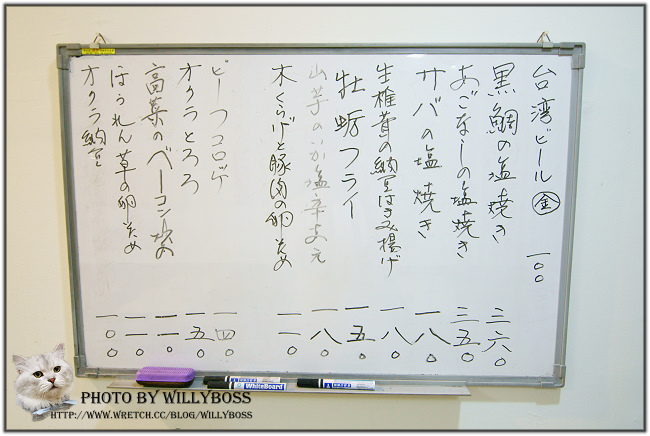 台湾ビール ㊎ 一〇〇
黒鯛の塩焼き 三六〇
あごなしの塩焼き 三五〇
サバの塩焼き 一八〇
生椎茸の納豆はさみ揚げ 一八〇
牡蛎フライ 一五〇
山芋のいか塩辛あえ 一八〇
木くらげと豚肉の卵いため 一二〇
ビーフコロッケ 一四〇
オクラとろろ 一五〇
高菜のベーコン炒め 一二〇
ほうれん草の卵いため 一二〇
オクラ納豆 一〇〇
WhiteBoard
PHOTO BY WILLYBOSS
HTTP://WWW.WRETCH.CC/BLOG/WILLYBOSS